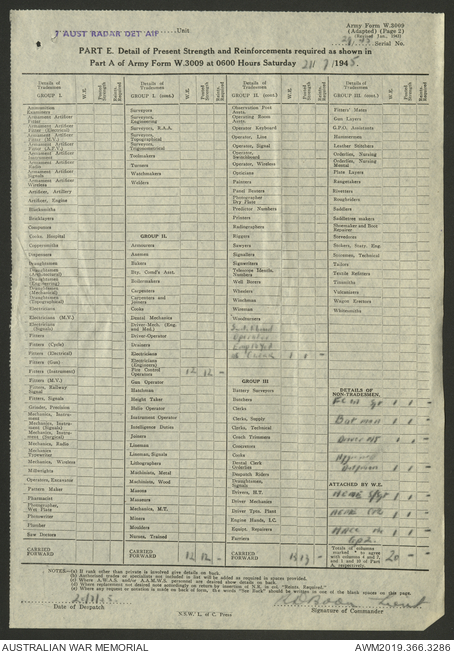 1 AUST RADAR DET AIF Unit
Army Form W.3009
(Adapted) (Page 2)
(Revised Jan., 1943)
Serial No.
PART E. Detail of Present Strength and Reinforcements required as shown in
Part A of Army Form W.3009 at 0600 Hours Saturday 21/7/1945.
Details of Tradesmen
GROUP I.
W.E.
Present Strength
Reinfts. Required
Ammunition Examiners
Armament Artificer Fitter
Armament Artificer Fitter (Electrical)
Armament Artificer Fitter (M.V.)
Armament Artificer Fitter (A.F.V.)
Armament Artificer Instrument
Armament Artificer Radio
Armament Artificer Signals
Armament Artificer Wireless
Artificer, Artillery
Artificer, Engine
Blacksmiths
Bricklayers
Computers
Cooks, Hospital
Coppersmiths
Dispensers
Draughtsmen (Architectural)
Draughtsmen (Engineering)
Draughtsmen (Mechanical)
Draughtsmen (Topographical)
Electricians
Electricians (M.V.)
Electricians (Signals)
Fitters
Fitters (Cycle)
Fitters (Electrical)
Fitters (Gun)
Fitters (Instrument)
Fitters (M.V.)
Fitters, Railway Signal
Fitters, Signals
Grinder, Precision
Mechanics, Instrument
Mechanics, Instrument (Signals)
Mechanics, Instrument (Surgical)
Mechanics, Radio
Mechanics Typewriter
Mechanics, Wireless
Millwrights
Operators, Excavator
Pattern Maker
Pharmacist
Photographer, Wet Plate
Photowriter
Plumber
Saw Doctors
CARRIED FORWARD
Details of Tradesmen
GROUP I. (cont.)
W.E.
Present Strength
Reinfts. Required
Surveyors
Surveyors, Engineering
Surveyors, R.A.A.
Surveyors, Topographical
Surveyors, Trigonometrical
Toolmakers
Turners
Watchmakers
Welders
GROUP II.
Armourers
Axemen
Bakers
Bty. Comd's Asst.
Boilermakers
Carpenters
Carpenters and Joiners
Cooks
Dental Mechanics
Driver-Mech. (Eng. and Med.)
Driver-Operator
Drainers
Electricians
Electricians (Engineers)
Fire Control Operators 12 12 -
Gun Operator
Hatchman
Height Taker
Helio Operator
Instrument Operator
Intelligence Duties
Joiners
Lineman
Lineman, Signals
Lithographers
Machinists, Metal
Machinists, Wood
Masons
Masseurs
Mechanics, M.T.
Miners
Moulders
Nurses, Trained
CARRIED FORWARD 12 12 -
Details of Tradesmen
GROUP II (cont.)
W.E.
Present Strength
Reinfts. Required
Observation Post Assts.
Operating Room Assts.
Operator Keyboard
Operator, Line
Operator, Signal
Operator, Switchboard
Operator, Wireless
Opticians
Painters
Panel Beaters
Photographer Dry Plate
Predictor Numbers
Printers
Radiographers
Riggers
Sawyers
Signallers
Signwriters
Telescope Identn. Numbers
Well Borers
Wheelers
Winchman
Wireman
Woodturners
Switchboard
Operator
Employed
as Clerk 1 1 -
GROUP III
Battery Surveyors
Butchers
Clerks
Clerks, Supply
Clerks, Technical
Coach Trimmers
Concretors
Cooks
Dental Clerk Orderlies
Despatch Riders
Draughtsmen, Signals
Drivers, M.T.
Driver Mechanics
Driver Tptn. Plant
Engine Hands, I.C.
Equipt. Repairers
Farriers
CARRIED FORWARD 13 13 -
Details of Tradesmen
GROUP III. (cont.)
W.E.
Present Strength
Reinfts. Required
Fitters' Mates
Gun Layers
G.P.O. Assistants
Hammermen
Leather Stitchers
Orderlies, Nursing
Orderlies, Nursing Mental
Plate Layers
Rangetakers
Riveters
Roughriders
Saddlers
Saddletree makers
Shoemaker and Boot Repairer
Stevedores
Stokers, Staty. Eng.
Storemen, Technical
Tailors
Textile Refitters
Tinsmiths
Vulcanisers
Wagon Erectors
Whitesmiths
DETAILS OF NON-TRADESMEN.
Batman 1 1 -
Driver MT 1 1 -
ATTACHED BY W.E.
Totals of columns marked * to agree with columns 4 and 7, and 1 and 10 of Part A, respectively. 20 -
NOTES.—(a) If rank other than private is involved give details on back.
(b) Authorized trades or specialists not included in list will be added as required in spaces provided.
(c) Where A.W.A.S. and/or A.A.M.W.S. personnel are desired show details on back.
(d) Where replacement not desired note accordingly on return by insertion of N.R. in col. "Reinfts. Required."
(e) Where any request or notation is made on back of form, the words "See Back" should be written in one of the blank spaces on this page.
Date of Despatch
Signature of Commander
N.S.W. L. of C. Press
AUSTRALIAN WAR MEMORIAL
AWM2019.366.3286